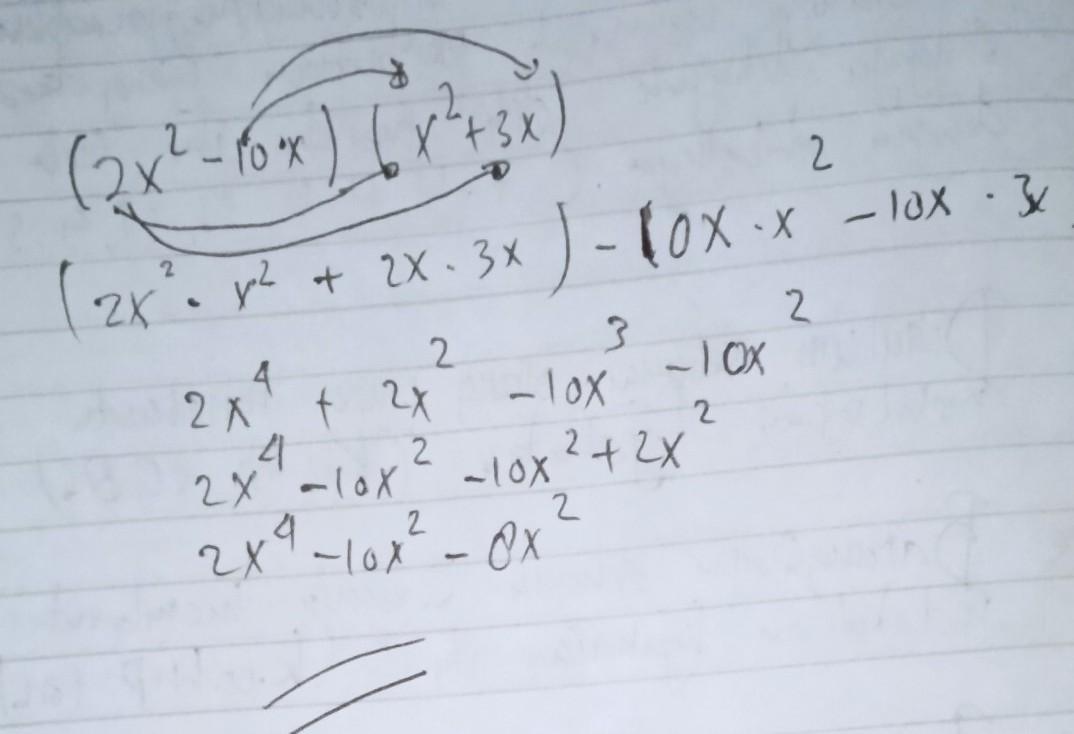 (2x² - 10x) (x² + 3x)
(2x² · x² + 2x · 3x) - 10x · x² - 10x · 3x
2x⁴ + 2x² - 10x³ - 10x²
2x⁴ - 10x² - 10x² + 2x²
2x⁴ - 10x² - 8x²